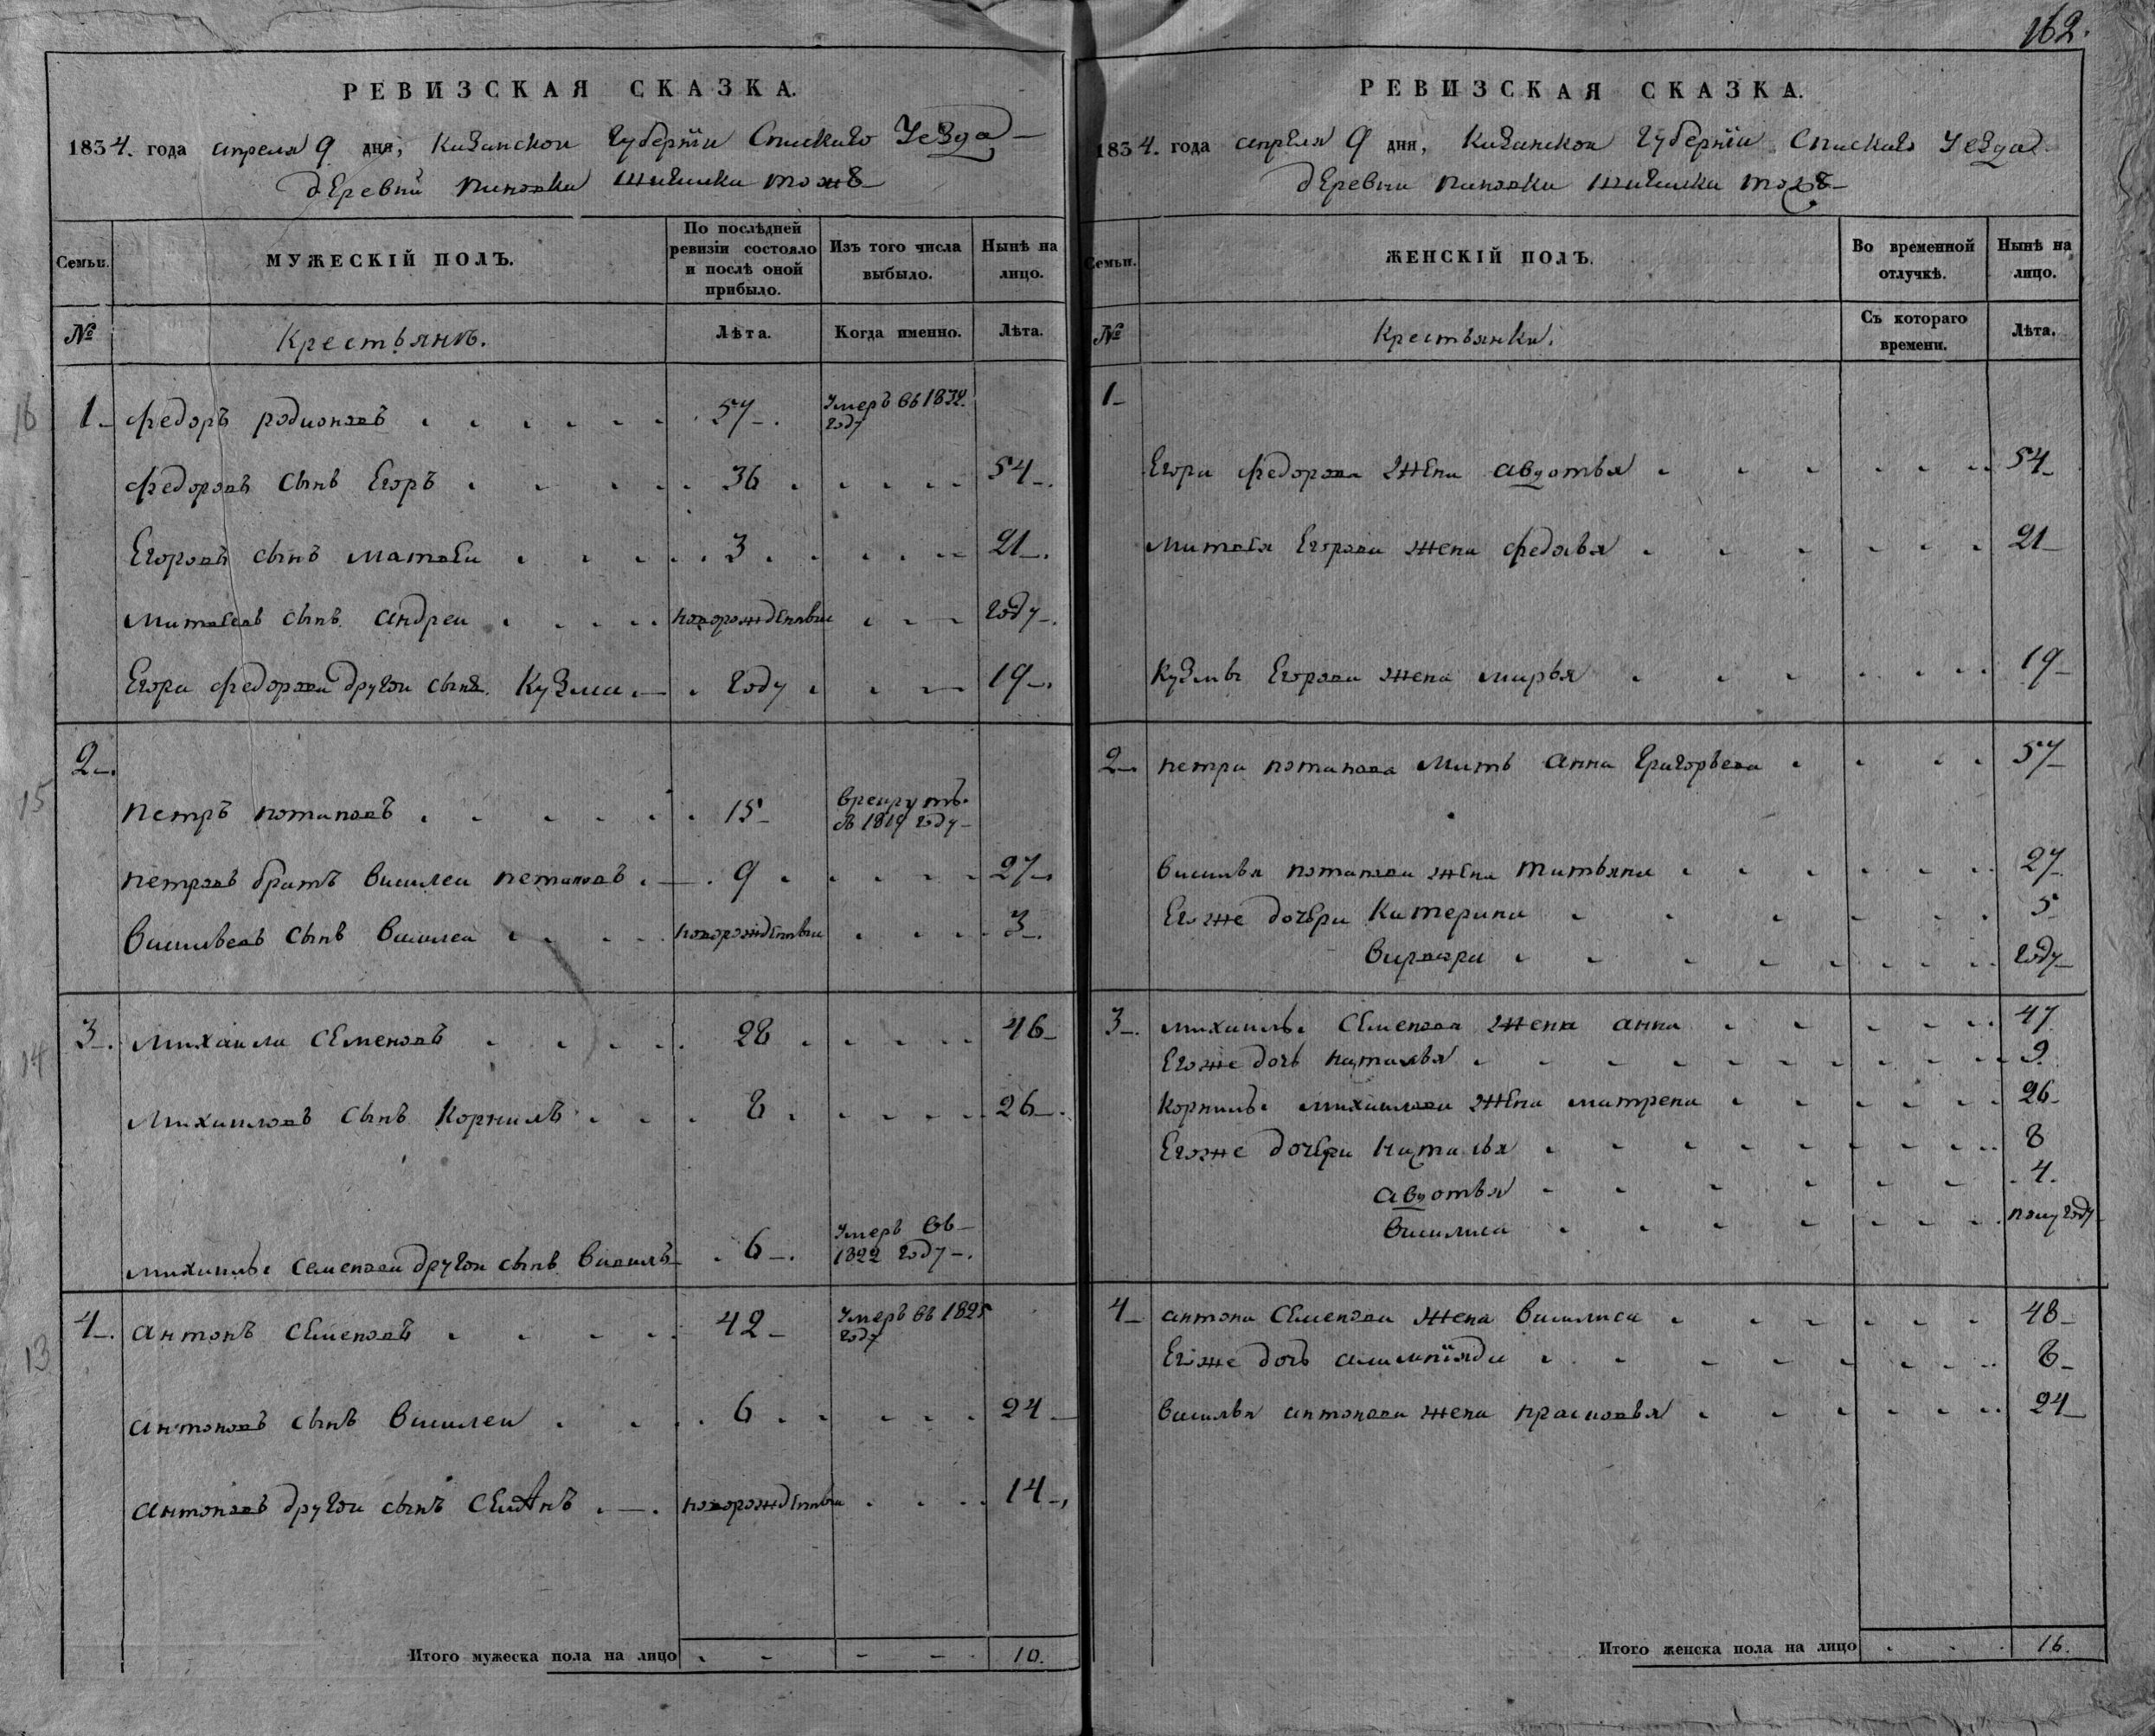 162.
РЕВИЗСКАЯ СКАЗКА.
1834. года апреля 9 дня, Казанской губернии Спаскаго Уезда
деревни тожъ
Семьи.
МУЖЕСКІЙ ПОЛЪ.
По послѣдней ревизіи состояло и послѣ оной прибыло.
Изъ того числа выбыло.
Нынѣ на лицо.
№
Крестьянъ.
Лѣта.
Когда именно.
Лѣта.
16
1. Федоръ родионовъ 57 Умеръ въ 1832 году
Федоровъ сынъ Егоръ 36 54
Егоровъ сынъ матвеи 3 21
матвеевъ сынъ андреи новорожденныи году
Егора федорова другои сынъ Кузма году 19
15
2.
петръ потаповъ 15 врекруты въ 1819 году
петровъ братъ василеи потаповъ 9 27
васильевъ сынъ василеи новорожденныи 3
14
3. михаила семеновъ 28 46
михаиловъ сынъ Корнилъ 8 26
михаилы семенова другои сынъ 6 Умеръ въ 1822 году
13
4. антонъ семеновъ 42 Умеръ въ 1825 году
антоновъ сынъ василеи 6 24
антоновъ другои сынъ новорожденныи 14
Итого мужеска пола на лицо 10.
РЕВИЗСКАЯ СКАЗКА.
1834. года апреля 9 дня, Казанской губерніи Спаскаго Уезда
деревни тожъ
Семьи.
ЖЕНСКІЙ ПОЛЪ.
Во временной отлучкѣ.
Нынѣ на лицо.
№
Крестьянки.
Съ котораго времени.
Лѣта.
1
Егора федорова жена авдотья 54
матвея Егорова жена федосья 21
Кузмы Егорова жена марья 19
2 петра потапова мать анна григорьева 57
василья потапова жена татьяна 27
Егоже дочери катерина 5
варвара году
3 михаилы семенова жена анна 47
Егоже дочь наталья 9
корнилы михаилова жена матрена 26
Егоже дочери наталья 8
авдотья 4.
василиса полугоду
4 антона семенова жена василиса 48
Егоже дочь алимпіяда 8
василья антонова жена прасковья 24
Итого женска пола на лицо 16.